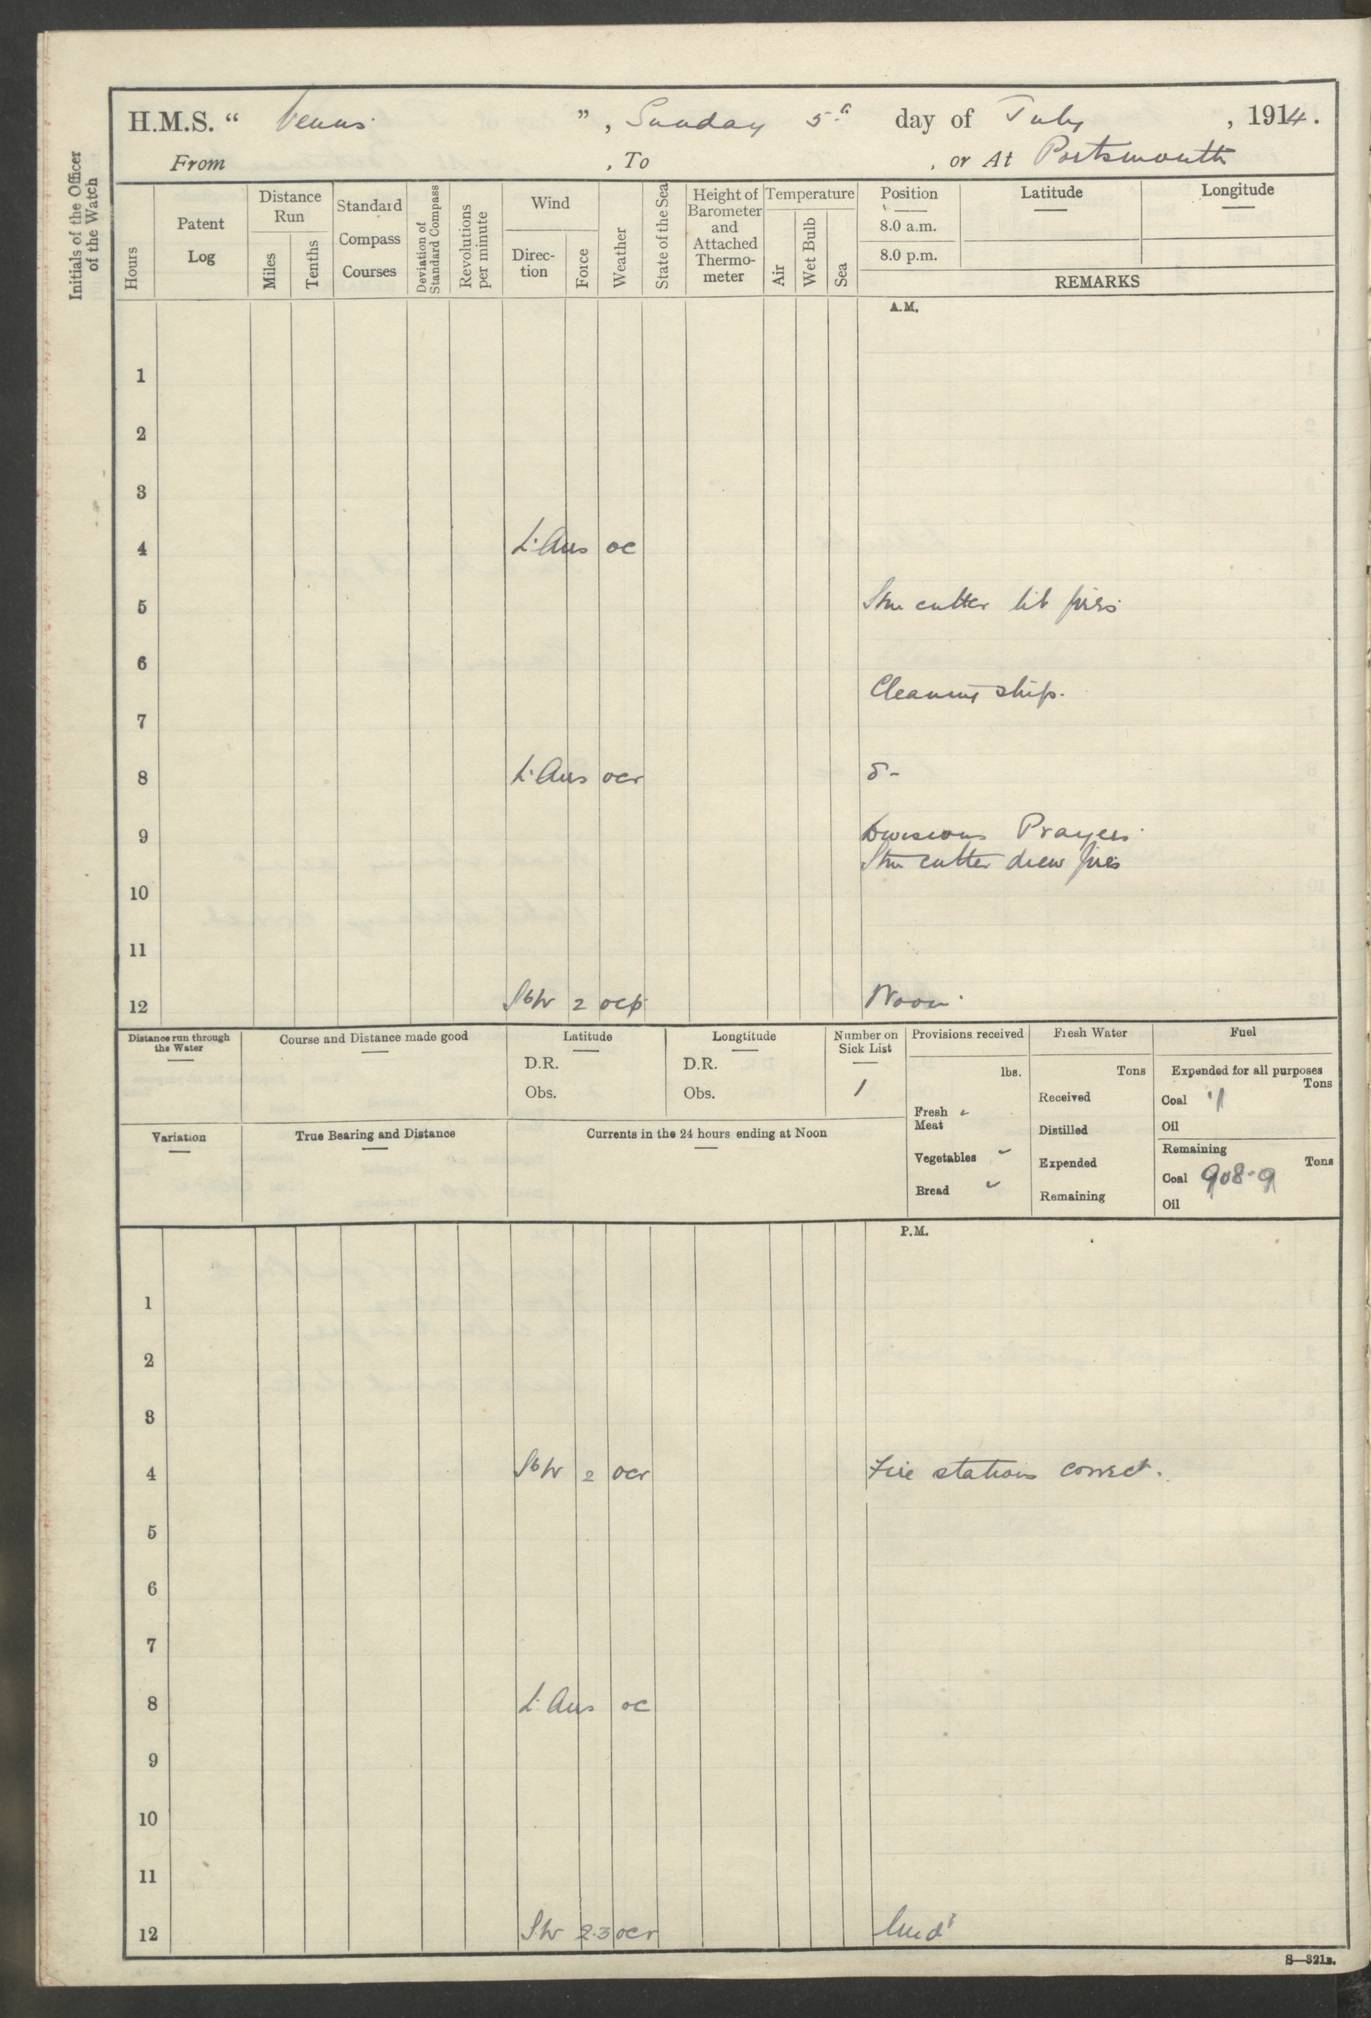 H.M.S. “ Venus ”, Sunday 5th day of July, 1914.
From , To , or At Portsmouth
Initials of the Officer of the Watch
Hours
Patent Log
Distance Run
Miles
Tenths
Standard Compass Courses
Deviation of Standard Compass
Revolutions per minute
Wind
Direction
Force
Weather
State of the Sea
Height of Barometer and Attached Thermometer
Temperature
Air
Wet Bulb
Sea
Position
8.0 a.m.
8.0 p.m.
Latitude
Longitude
REMARKS
A.M.
1
2
3
4 Lt Airs oc
5 Stm cutter lit fires
6
Cleaning ship.
7
8 Lt Airs ocr 8-
9 Divisions Prayers
Stm cutter drew fires
10
11
12 SbW 2 ocp Noon
Distance run through the Water
Course and Distance made good
Latitude
D.R.
Obs.
Longtitude
D.R.
Obs.
Number on Sick List
1
Provisions received
lbs.
Fresh Meat
Vegetables
Bread
Fresh Water
Tons
Received
Distilled
Expended
Remaining
Fuel
Expended for all purposes
Tons
Coal
Oil
Remaining
Tons
Coal 908-9
Oil
Variation
True Bearing and Distance
Currents in the 24 hours ending at Noon
P.M.
1
2
3
4 SbW 2 ocr Fire stations correct.
5
6
7
8 Lt Airs oc
9
10
11
12 SW 2.3 ocr Midt
S—321B.